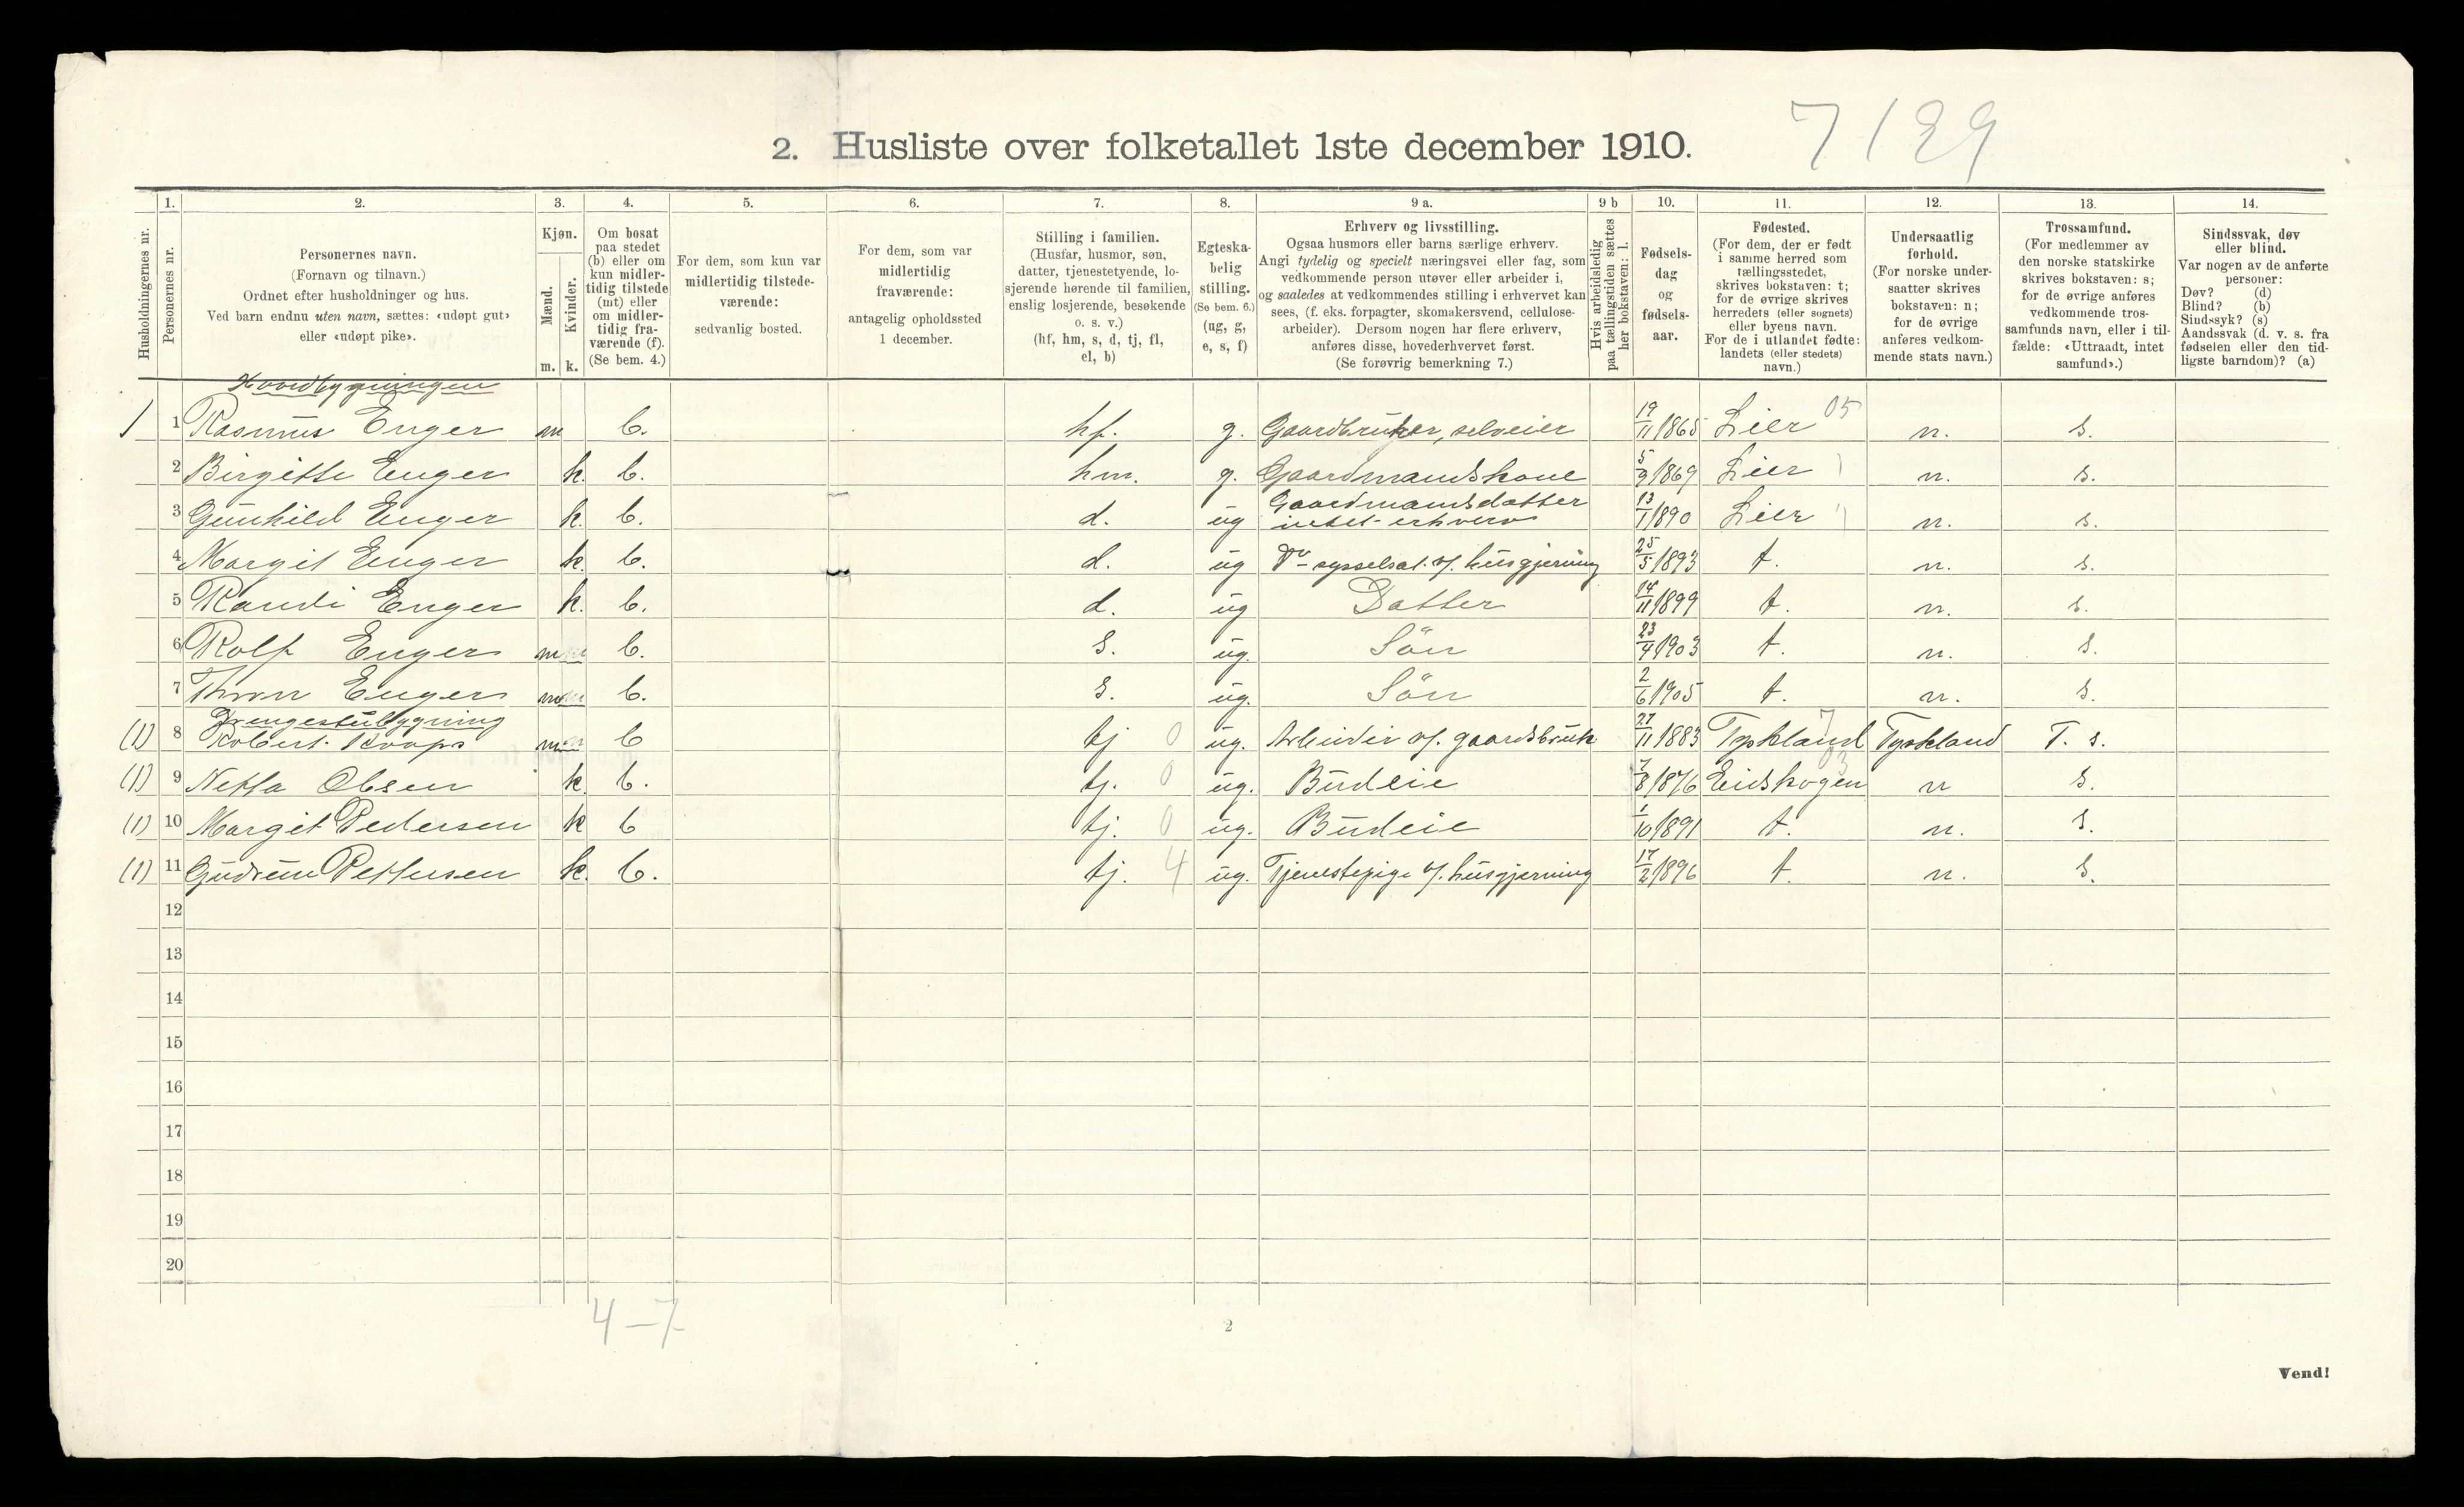 2. Husliste over folketallet 1ste december 1910. 7139
Husholdningernes nr.
1. Personernes nr.
2. Personernes navn. (Fornavn og tilnavn.) Ordnet efter husholdninger og hus. Ved barn endnu uten navn, sættes: «udøpt gut» eller «udøpt pike».
3. Kjøn. Mænd. m. Kvinder. k.
4. Om bosat paa stedet (b) eller om kun midlertidig tilstede (mt) eller om midlertidig fraværende (f). (Se bem. 4.)
5. For dem, som kun var midlertidig tilstedeværende: sedvanlig bosted.
6. For dem, som var midlertidig fraværende: antagelig opholdssted 1 december.
7. Stilling i familien. (Husfar, husmor, søn, datter, tjenestetyende, losjerende hørende til familien, enslig losjerende, besøkende o. s. v.) (hf, hm, s, d, tj, fl, el, b)
8. Egteskabelig stilling. (Se bem. 6.) (ug, g, e, s, f)
9 a. Erhverv og livsstilling. Ogsaa husmors eller barns særlige erhverv. Angi tydelig og specielt næringsvei eller fag, som vedkommende person utøver eller arbeider i, og saaledes at vedkommendes stilling i erhvervet kan sees, (f. eks. forpagter, skomakersvend, cellulosearbeider). Dersom nogen har flere erhverv, anføres disse, hovederhvervet først. (Se forøvrig bemerkning 7.)
9 b Hvis arbeidsledig paa tællingstiden sættes her bokstaven: l.
10. Fødselsdag og fødselsaar.
11. Fødested. (For dem, der er født i samme herred som tællingsstedet, skrives bokstaven: t; for de øvrige skrives herredets (eller sognets) eller byens navn. For de i utlandet fødte: landets (eller stedets) navn.)
12. Undersaatlig forhold. (For norske undersaatter skrives bokstaven: n; for de øvrige anføres vedkommende stats navn.)
13. Trossamfund. (For medlemmer av den norske statskirke skrives bokstaven: s; for de øvrige anføres vedkommende trossamfunds navn, eller i tilfælde: «Uttraadt, intet samfund».)
14. Sindssvak, døv eller blind. Var nogen av de anførte personer: Døv? (d) Blind? (b) Sindssyk? (s) Aandssvak (d. v. s. fra fødselen eller den tidligste barndom)? (a)
Hovedbygningen
1 1 Rasmus Enger m b. hf. g. Gaardbruker, selveier 19/11 1865 Lier 05 n. s.
2 Birgitte Enger k. b. hm. g. Gaardmandskone 5/9 1869 Lier n. s.
3 Gunhild Enger k. b. d. ug Gaardmandsdatter intet erhverv 13/1 1890 Lier n. s.
4 Margit Enger k. b. d. ug Do sysselsat v/. husgjerning 25/5 1893 t. n. s.
5 Randi Enger k. b. d. ug Datter 14/11 1899 t. n. s.
6 Rolf Enger m b. s. ug. Sön 23/4 1903 t. n. s.
7 Thron Enger m b. s. ug. Sön 2/6 1905 t. n. s.
Drengestubygning
(1) 8 Robert Koops m b tj 0 ug. Arbeider v/. gaardsbruk 27/11 1883 Tyskland 7 Tyskland T. s.
(1) 9 Netta Olsen k. b. tj. 0 ug. Budeie 7/8 1876 Eidskogen 03 n s.
(1) 10 Margit Pedersen k b tj. 0 ug. Budeie 1/10 1891 t. n. s.
(1) 11 Gudrun Pettersen k. b. tj. 4 ug. Tjenestepige v/. husgjerning 17/2 1896 t. n. s.
12
13
14
15
16
17
18
19
20
4–7
2
Vend!